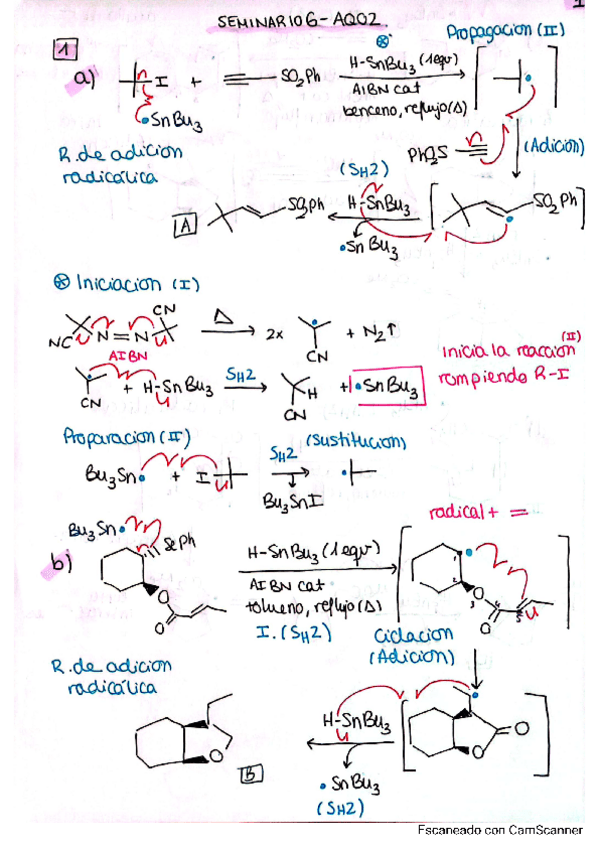 1
SEMINARIO 6 - AQO2.
1
Propagacion (II)
a)
I + SO2Ph
H-SnBu3 (1equ)
AIBN cat
benceno, reflujo (Δ)
•SnBu3
R. de adicion
radicálica
PhO2S
(Adición)
(SH2)
A
SO2Ph
H-SnBu3
•SnBu3
SO2Ph
Iniciacion (I)
CN
NC N=N
AIBN
Δ
2x
CN
+ N2↑
CN
+ H-SnBu3
SH2
H
CN
+ •SnBu3
Inicia la reaccion (II)
rompiendo R-I
Proparacion (II)
(Sustitucion)
Bu3Sn• + I
SH2
Bu3SnI
radical + =
Bu3Sn•
SePh
b)
O
O
H-SnBu3 (1equv)
AIBN cat
tolueno, reflujo (Δ)
I. (SH2)
O
O
Ciclacion
(Adicion)
R. de adicion
radicálica
O
B
H-SnBu3
•SnBu3
(SH2)
O
O
Escaneado con CamScanner